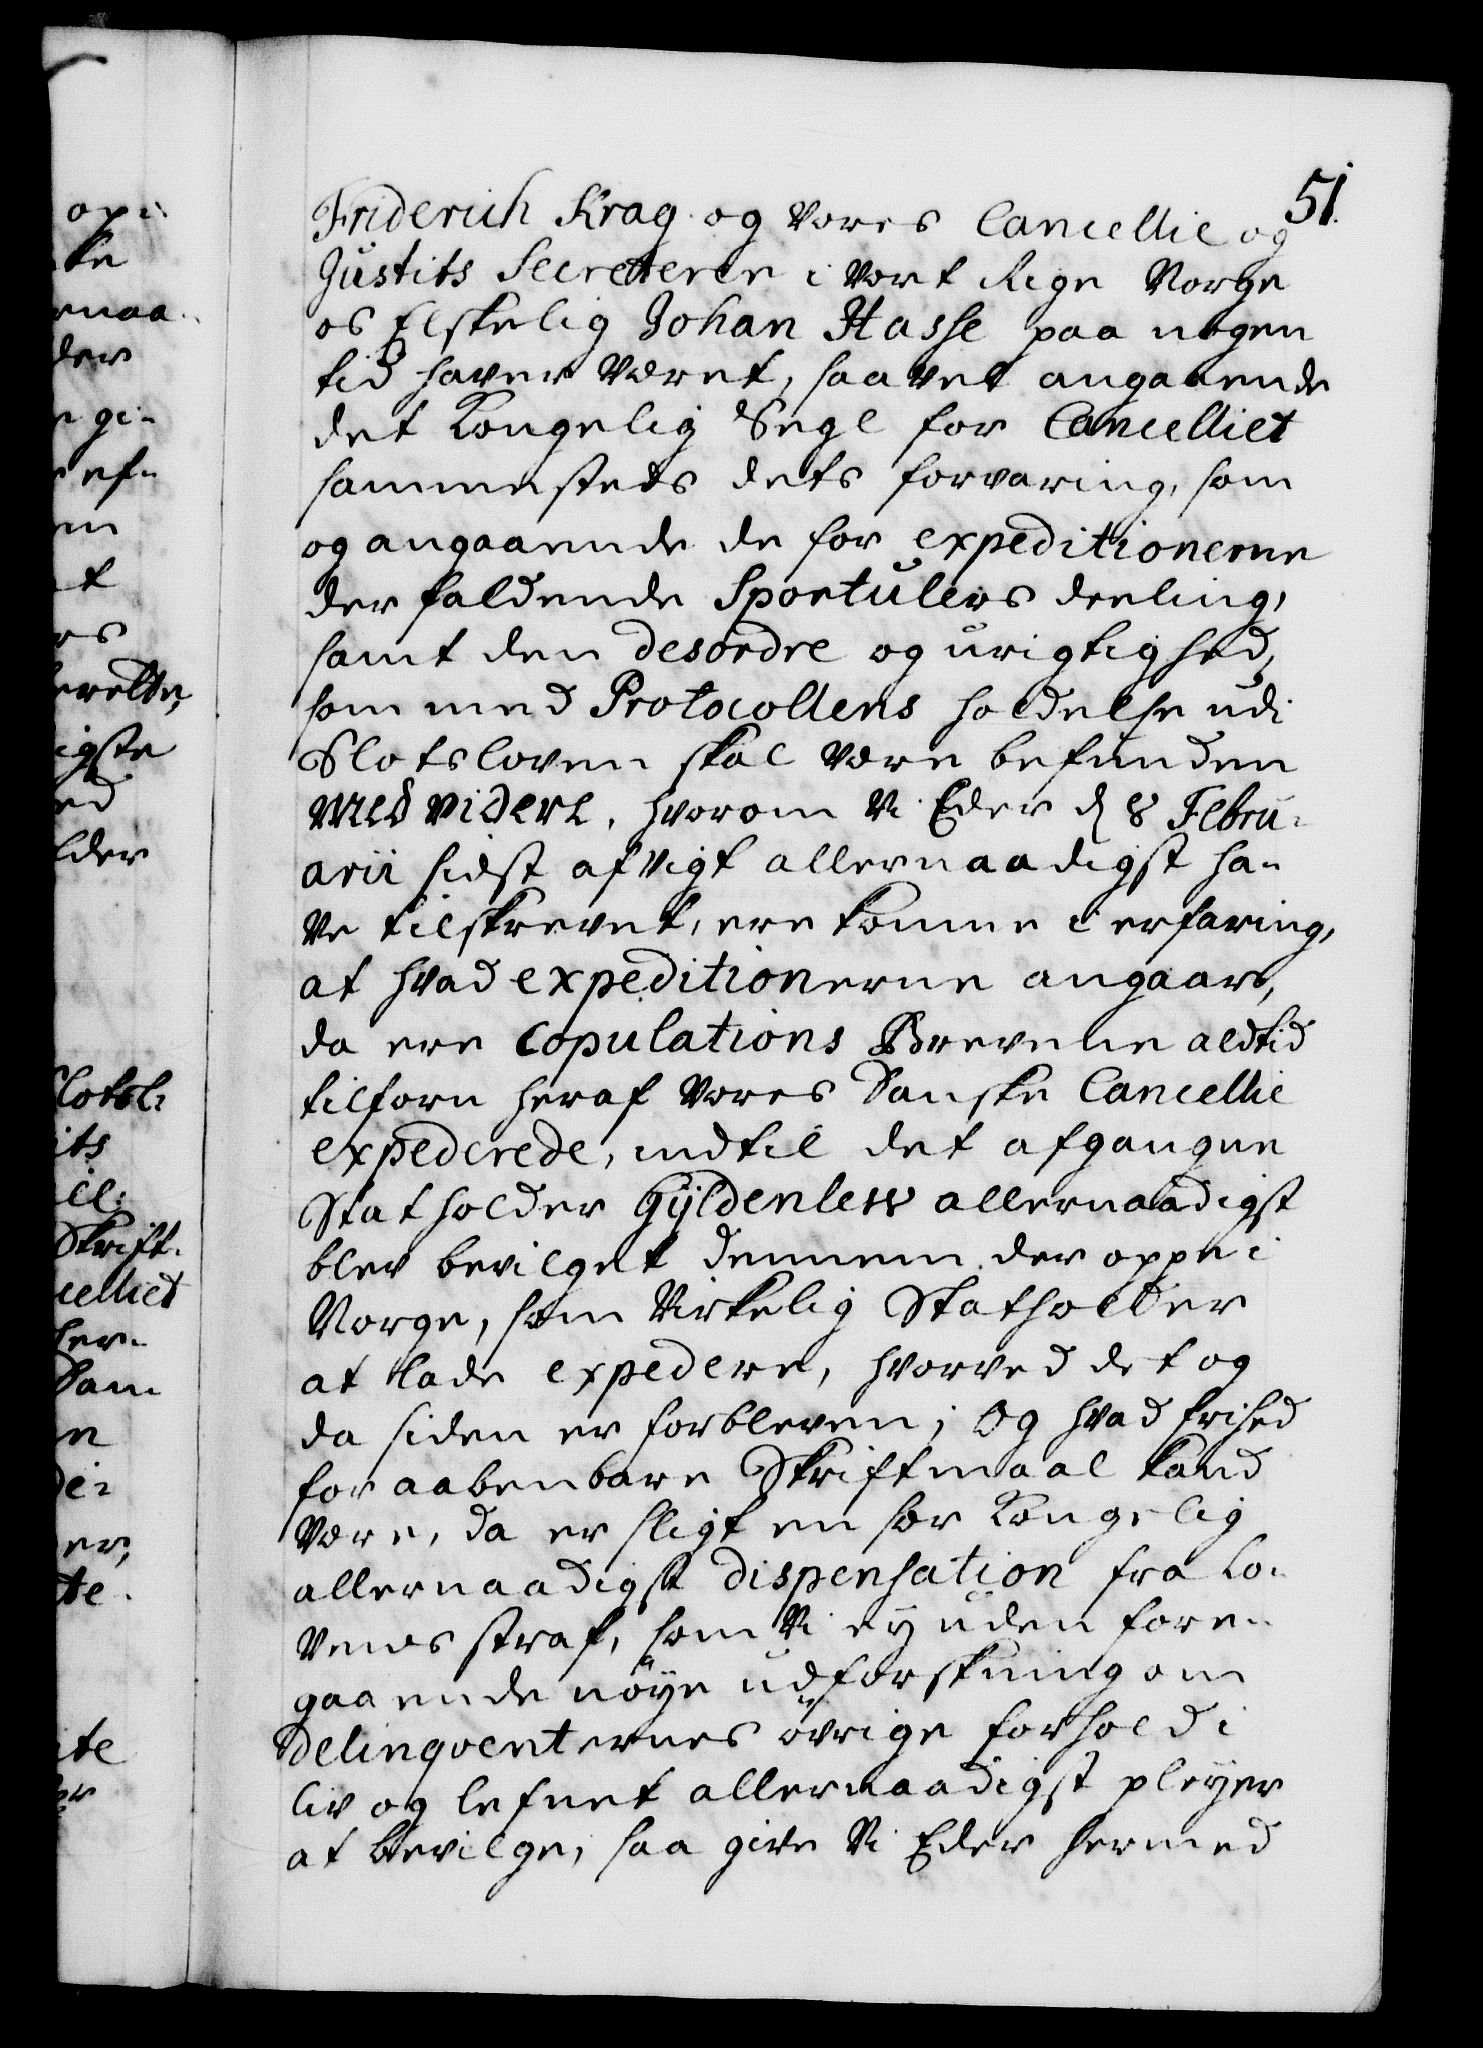 opi-
ke
rnaa-
der
gi-
ef-
en
t
rs
erette,
igste
ed
lder
Slotsl:
its
il:
Skrift-
celliet
her-
Dan
n
di-
er,
te.
ite
er
51.
Friderich Krag og Vores Cancellie og
Justits Secreterer i Vort Rige Norge
os Elskelig Johan Hasse paa nogen
tid haver Været, saavel angaaende
det Kongelig Segl for Cancelliet
sammesteds dets forvaring, som
og angaaende de for expeditionerne
der faldende Sportulers deeling,
samt den desordre og urigtighed,
som med Protocollens holdelse udi
Slotsloven skal være befunden
med videre, hvorom Vi Eder d 8 Febru-
arii sidst afvigt allernaadigst ha-
ve tilskrevet, ere komne i erfaring,
at hvad expeditionerne angaar,
da ere Copulations Brevene aldtid
tilforn heraf Vores Danske Cancellie
expederede, indtil det afgangne
Statholder Gyldenlew allernaadigst
blev bevilget dennem der oppe i
Norge, som Virkelig Statholder
at lade expedere, hvorved det og
da siden er forbleven; Og hvad frihed
for aabenbare Skriftmaal kand
være, da er sligt en sær Kongelig
allernaadigst dispensation fra Lo-
vens straf, som Vi ey uden fore-
gaaende nøye udforskning om
Delinqventernes øvrige forhold i
liv og lefnet allernaadigst pleyer
at bevilge, saa give Vi Eder hermed